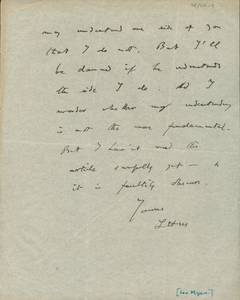 may understand one side of you
that I do not. But I'll
be damned if he understands
the side I do. And I
wonder whether my understanding
is not the more fundamental.
But I haven't read the
article carefully yet —
it is
Yours